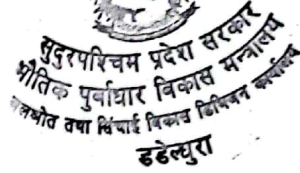 सुदुरपश्चिम प्रदेश सरकार
भौतिक पुर्वाधार विकास मन्त्रालय
जलश्रोत तथा सिंचाई विकास डिभिजन कार्यालय
डडेल्धुरा